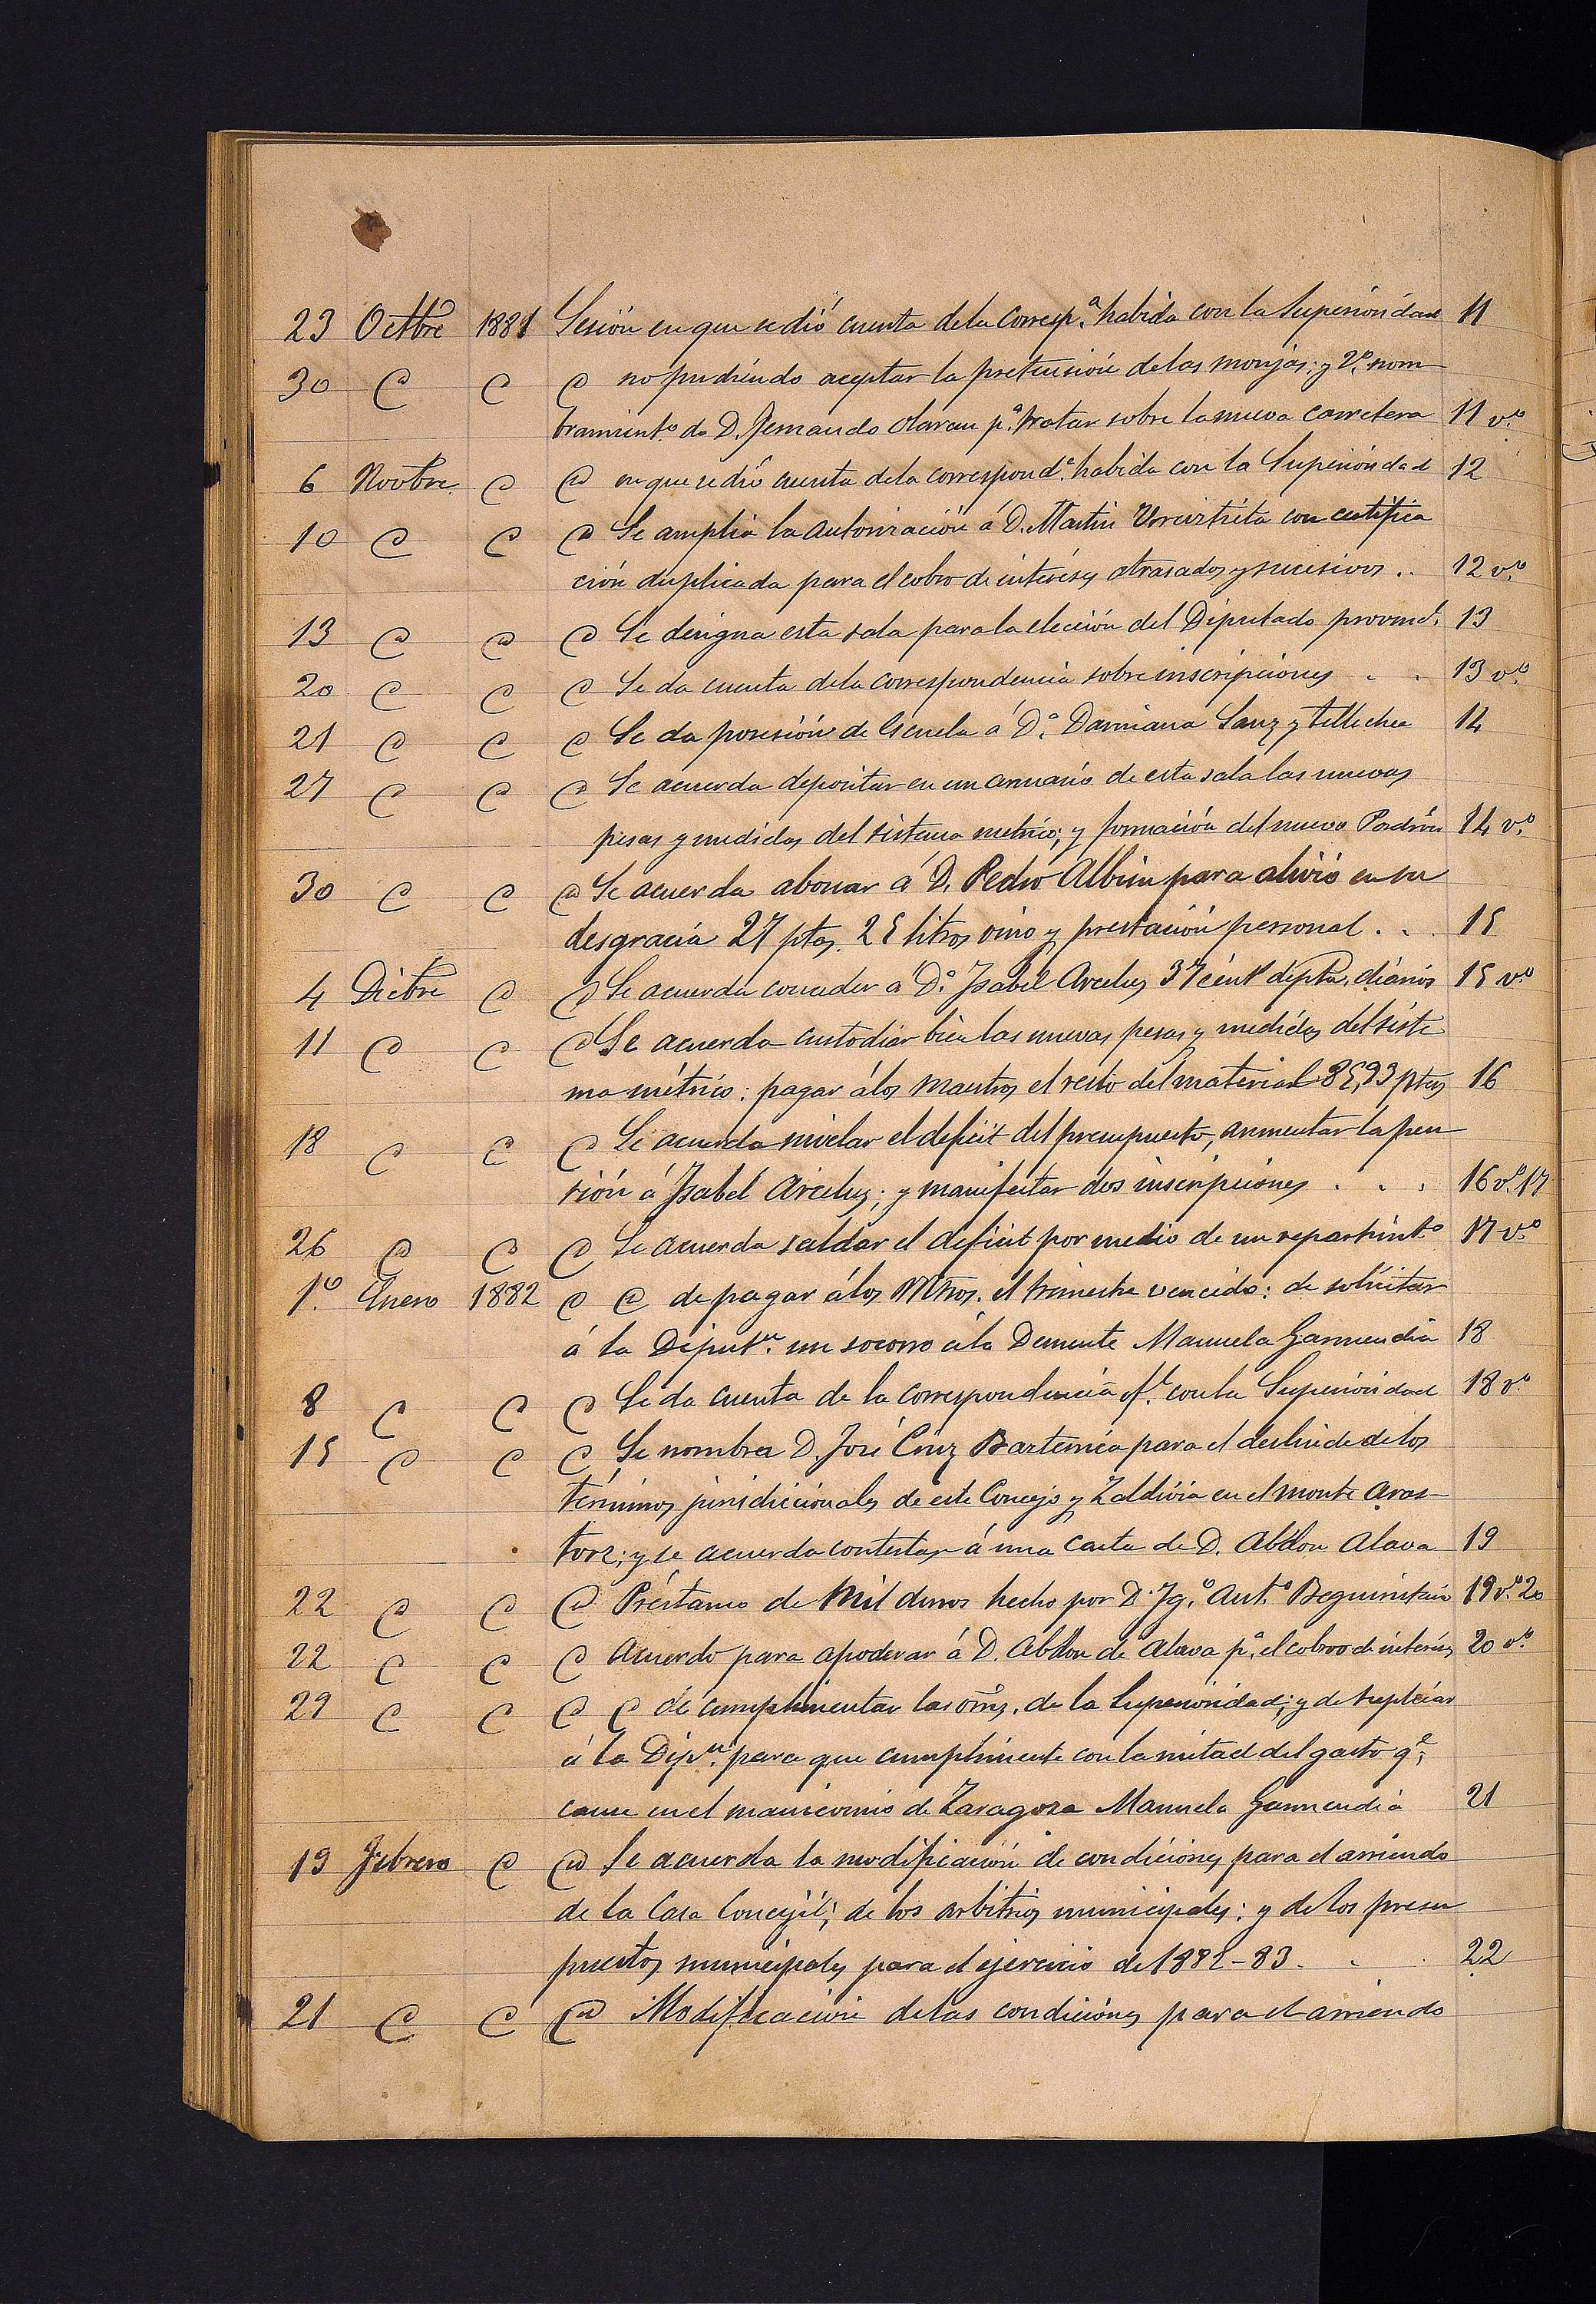 23 Octtbre 1881 Sesión en que se dió cuenta de la corresp.ª habida con la Superioridad 11
30 @ @ @ no pudiendo aceptar la pretensión de las monjas; y 2.º nom
bramient.º de D. Fernando Olarau p.ª tratar sobre la nueva carretera 11 v.º
6 Novbre @ @ en que se dió cuenta de la correspond.ª habida con la Superioridad 12
10 @ @ @ Se amplia la autorización á D. Martin Urreiztieta con certifica
ción duplicada para el cobro de interéses atrasados y sucesivos . . 12 v.º
13 @ @ @ Se designa esta sala para la elección del Diputado provincl. 13
20 @ @ @ Se da cuenta de la correspondencia sobre inscripciones . . 13 v.º
21 @ @ @ Se da posesión de Escuela á D.ª Damiana Sanz y Tellechea 14
27 @ @ @ Se acuerda depositar en un armario de esta sala las nuevas
pesas y medidas del sistema métrico; y formación del nuevo Padrón 14 v.º
30 @ @ @ Se acuerda abonar á D. Pedro Albim para alivio en su
desgracia 27 ptas. 25 litros vino y prestación personal . . . 15
4 Dicbre @ @ Se acuerda conceder á D.ª Isabel Arceluz 37 cént de pta. diarios 15 v.º
11 @ @ @ Se acuerda custodiar bien las nuevas pesas y medidas del siste
ma métrico: pagar á los maestros el resto del material 85,93 ptas 16
18 @ @ @ Se acuerda nivelar el deficit del presupuesto, aumentar la pen
sión á Isabel Arceluz; y manifestar dos inscripciones . . . 16 v.º 17
26 @ @ @ Se acuerda saldar el deficit por medio de un repartimt.º 17 v.º
1.º Enero 1882 @ @ de pagar á los Mtros. el trimestre vencido: de solicitar
á la Diput.ⁿ un socorro á la Demente Manuela Garmendia 18
8 @ @ @ Se da cuenta de la correspondencia of.l con la Superioridad 18 v.º
15 @ @ @ Se nombra D. José Cruz Bazterrica para el deslinde de los
términos jurisdiccionales de este Concejo y Zaldivia en el monte Aras-
torz; y se acuerda contestar á una carta de D. Abdon Alava 19
22 @ @ @ Préstamo de Mil duros hecho por D. Ig.º Ant.º Beguiristain 19 v.º 20
22 @ @ @ Acuerdo para apoderar á D. Abdon de Alava p.ª el cobro de interés 20 v.º
29 @ @ @ @ de cumplimentar las orns. de la Superioridad; y de suplicar
á la Dip.ⁿ para que cumplimente con la mitad del gasto q.e
cause en el manicomio de Zaragoza Manuela Garmendia 21
19 Febrero @ @ Se acuerda la modificación de condiciones para el arriendo
de la Casa Concejil; de los arbitrios municipales: y de los presu
puestos municipales para el ejercicio de 1882-83 . . . 22
21 @ @ @ Modificación de las condiciones para el arriendo